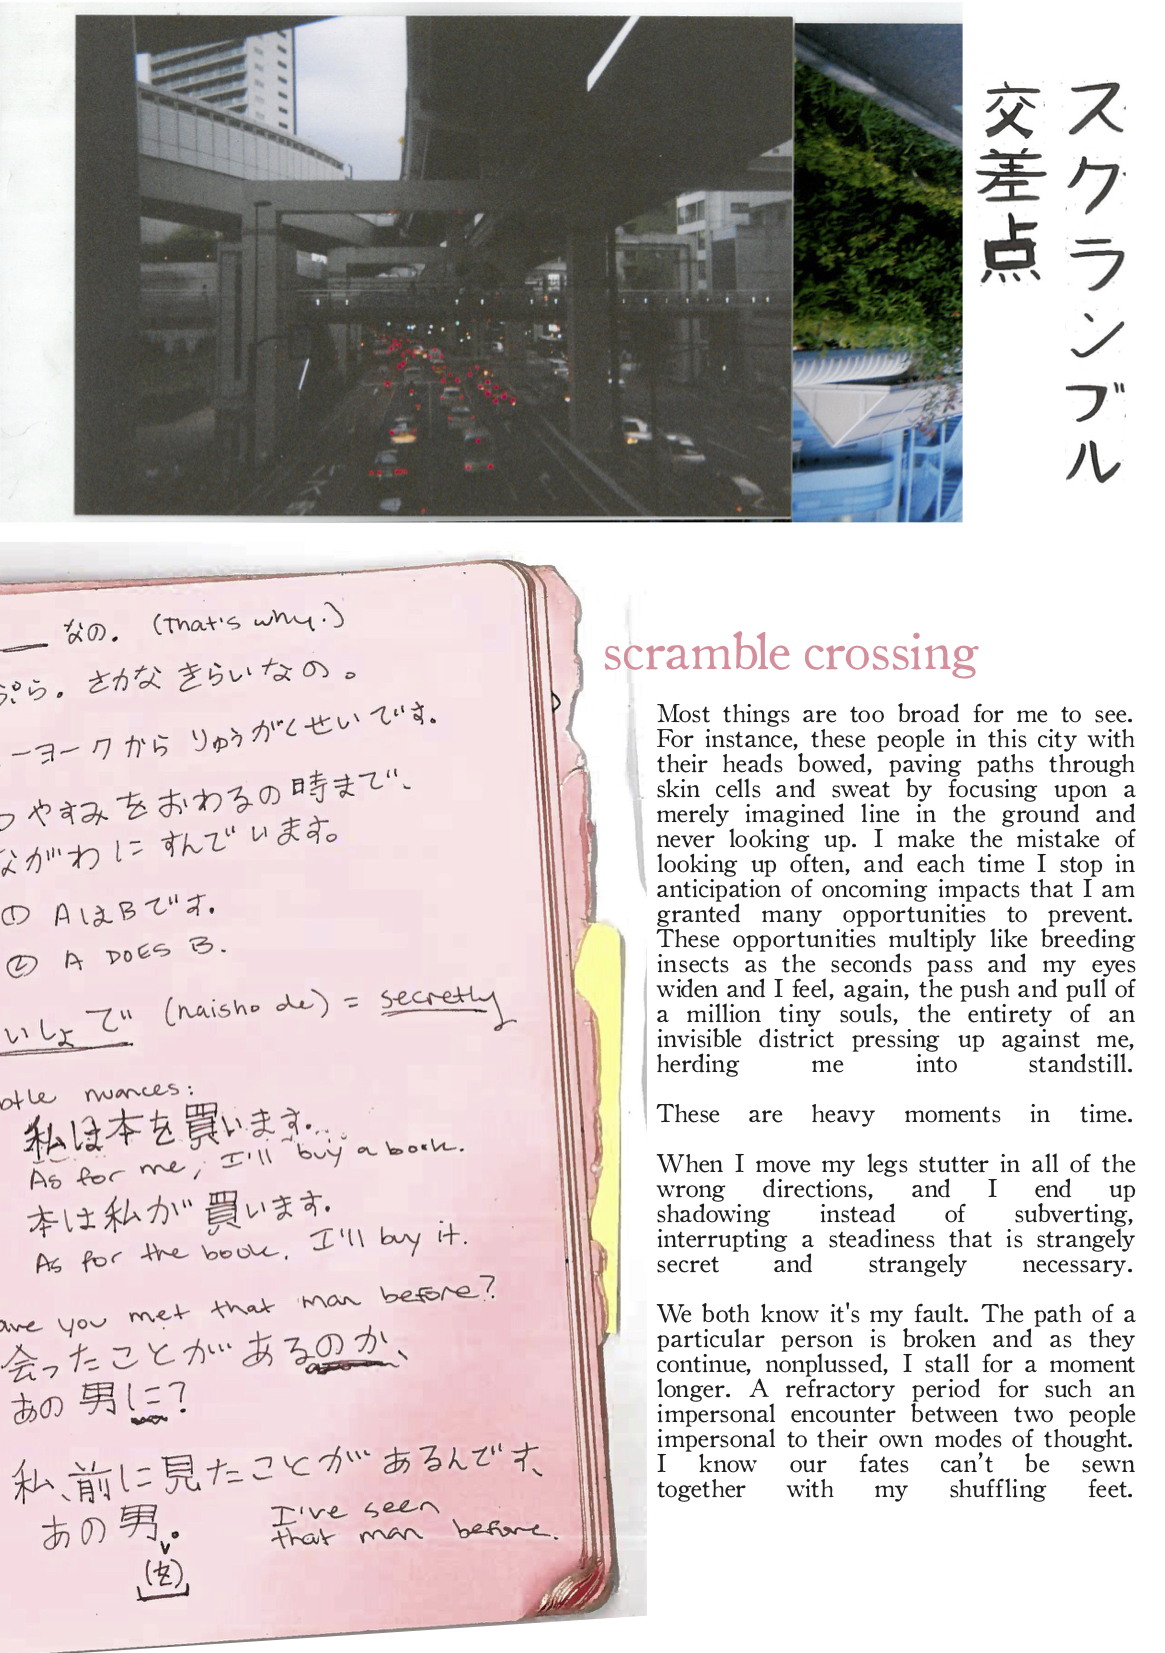 スクランブル
交差点
なの。 (That's why.)
ぷら。さかな きらいなの。
ーヨークから りゅうがくせいです。
やすみをおわるの時まで、
ながわに すんでいます。
① AはBです。
② A DOES B.
いしょで (naisho de) = secretly
nuances:
私は本を買います。
As for me, I'll buy a book.
本は私が買います。
As for the book, I'll buy it.
you met that man before?
会ったことがあるのか、
あの男に?
私、前に見たことがあるんです、
あの男。
(を)
I've seen
that man before.
scramble crossing
Most things are too broad for me to see.
For instance, these people in this city with
their heads bowed, paving paths through
skin cells and sweat by focusing upon a
merely imagined line in the ground and
never looking up. I make the mistake of
looking up often, and each time I stop in
anticipation of oncoming impacts that I am
granted many opportunities to prevent.
These opportunities multiply like breeding
insects as the seconds pass and my eyes
widen and I feel, again, the push and pull of
a million tiny souls, the entirety of an
invisible district pressing up against me,
herding me into standstill.
These are heavy moments in time.
When I move my legs stutter in all of the
wrong directions, and I end up
shadowing instead of subverting,
interrupting a steadiness that is strangely
secret and strangely necessary.
We both know it's my fault. The path of a
particular person is broken and as they
continue, nonplussed, I stall for a moment
longer. A refractory period for such an
impersonal encounter between two people
impersonal to their own modes of thought.
I know our fates can’t be sewn
together with my shuffling feet.